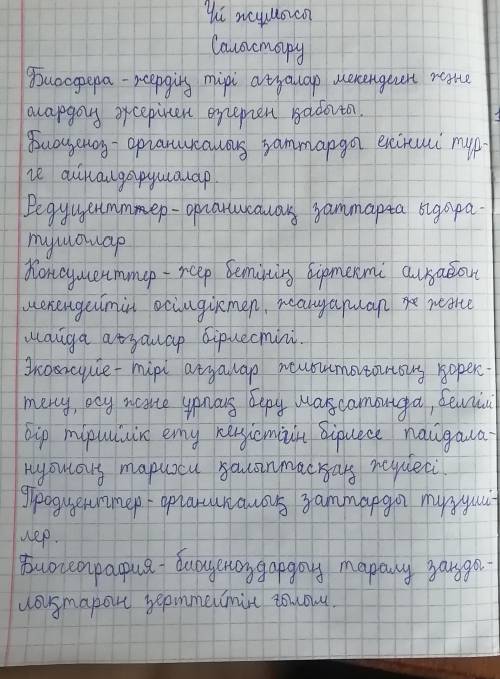 Үй жұмысы
Салыстыру
Биосфера - жердің тірі ағзалар мекендеген және
олардың әсерінен өзгерген қабығы.
Биоценоз - органикалық заттарды екінші түр-
ге айналдырушалар.
Редуценттер - органикалақ заттарға ыдыра-
тушылар
Консументтер - жер бетінің біртекті алқабын
мекендейтін өсімдіктер, жануарлар және
майда ағзалар бірлестігі.
Экожүйе - тірі ағзалар жиынтығының қорек-
тену, өсу және ұрпақ беру мақсатында, белгілі
бір тіршілік ету кеңістігін бірлесе пайдала-
нуының тарихи қалыптасқан жүйесі.
Продценттер - органикалық заттарды түзуші-
лер.
Биогеография - биоценоздардың таралу заңды-
лықтарын зерттейтін ғылым.